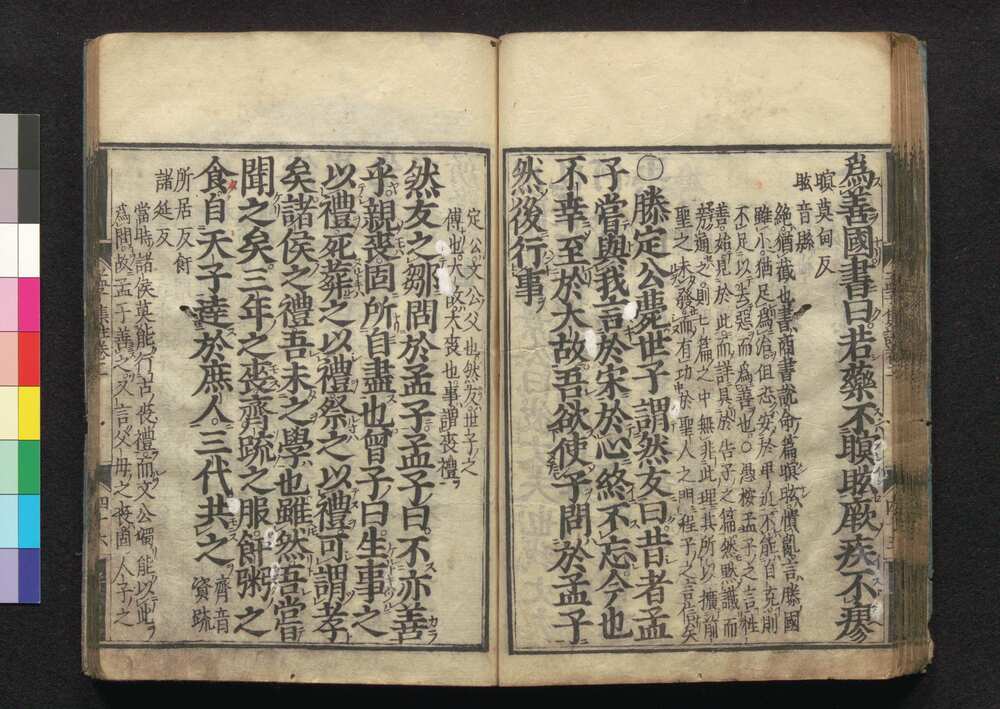 爲善國書曰若藥不瞑眩厥疾不瘳
瞑莫甸反
眩音縣
絶猶截也書商書說命篇瞑眩憒亂言滕國
雖小猶足爲治但恐安於卑近不能自克則
不足以去惡而爲善也○愚按孟子之言性
善始見於此而詳具於告子之篇然默識而
旁通之則七篇之中無非此理其所以擴前
聖之未發而有功於聖人之門程子之言信矣
○滕定公薨世子謂然友曰昔者孟
子嘗與我言於宋於心終不忘今也
不幸至於大故吾欲使子問於孟子
然後行事
定公文公父也然友世子之
傅也大故大喪也事謂喪禮
然友之鄒問於孟子孟子曰不亦善
乎親喪固所自盡也曾子曰生事之
以禮死葬之以禮祭之以禮可謂孝
矣諸侯之禮吾未之學也雖然吾嘗
聞之矣三年之喪齊䟽之服飦粥之
食自天子達於庶人三代共之
齊音
資䟽
所居反飦
諸延反
當時諸侯莫能行古喪禮而文公獨能以此
爲問故孟子善之又言父母之喪固人子之
四十六